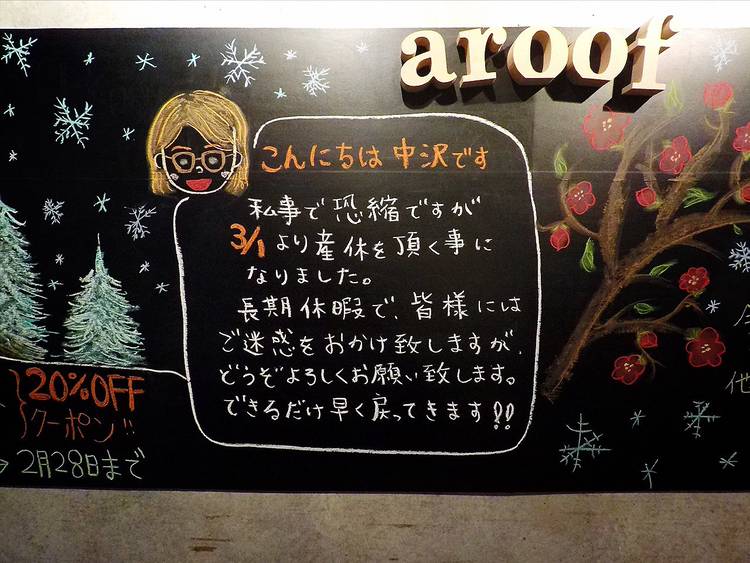 aroof
こんにちは 中沢です
私事で恐縮ですが
3/1より産休を頂く事に
なりました。
長期休暇で、皆様には
ご迷惑をおかけ致しますが、
どうぞよろしくお願い致します。
できるだけ早く戻ってきます!!
20%OFF
クーポン!!
2月28日まで
他